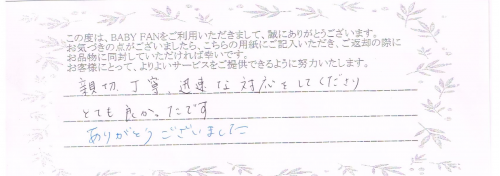 この度は、BABY FANをご利用いただきまして、誠にありがとうございます。
お気づきの点がございましたら、こちらの用紙にご記入いただき、ご返却の際に
お品物に同封していただければ幸いです。
お客様にとって、よりよいサービスをご提供できるように努力いたします。
親切、丁寧、迅速な対応をしてくださり
とても良かったです
ありがとうございました